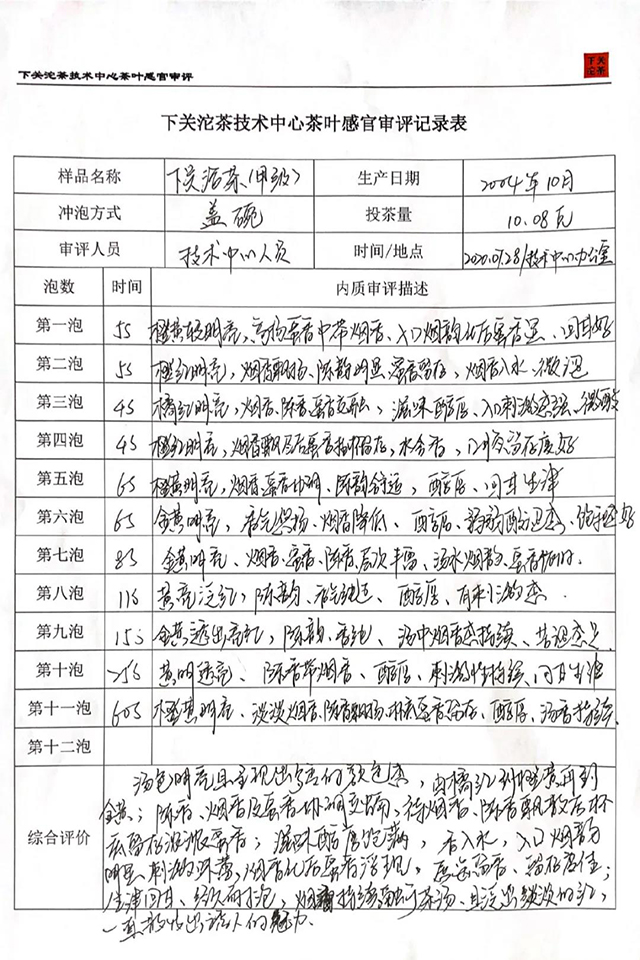 下关沱茶技术中心茶叶感官审评
下关沱茶
下关沱茶技术中心茶叶感官审评记录表
样品名称 下关沱茶(甲级) 生产日期 2004年10月
冲泡方式 盖碗 投茶量 10.08克
审评人员 技术中心人员 时间/地点 2020.07.28/技术中心办公室
泡数 时间 内质审评描述
第一泡 5S 橙黄较明亮、高扬蜜香中带烟香、入口烟韵化后蜜香显、回甘好
第二泡 5S 橙红明亮,烟香飘扬、陈韵明显、蜜香留存,烟香入水,微涩
第三泡 4S 橘红明亮,烟香、陈香蜜香交融,滋味醇厚、入口刺激感强、微酸
第四泡 4S 橙红明亮,烟香飘后蜜香留存,水含香,
第五泡 6S 橙黄明亮,烟香蜜香协调、陈韵,醇厚、回甘生津
第六泡 6S 金黄明亮,香气悠扬、烟香降低、醇厚、
第七泡 8S 金黄明亮、烟香、蜜香、陈香层次丰富、汤水烟韵、蜜香
第八泡 11S 黄亮泛红,陈韵、香气纯正、醇厚、有刺激感
第九泡 15S 金黄透出亮红,陈韵、香纯、汤中烟香感持续、苦涩感足
第十泡 25S 黄明透亮、陈香带烟香、醇厚、刺激性持续、回甘生津
第十一泡 60S 橙黄明亮、淡淡烟香、陈香飘扬、杯底蜜香留存、醇厚、汤香持续
第十二泡
综合评价 汤色明亮且呈现出的颜色感,由橘红到橙黄再到
金黄;陈香、烟香及蜜香协调交融,待烟香、陈香飘散后杯
底留存浓浓蜜香;滋味醇厚饱满,香入水,入口烟韵
明显、刺激,烟香化后蜜香浮现,留存度佳;
生津回甘、经久耐泡,烟持续于茶汤、且泛出淡淡的红,
一直散发出诱人的魅力.